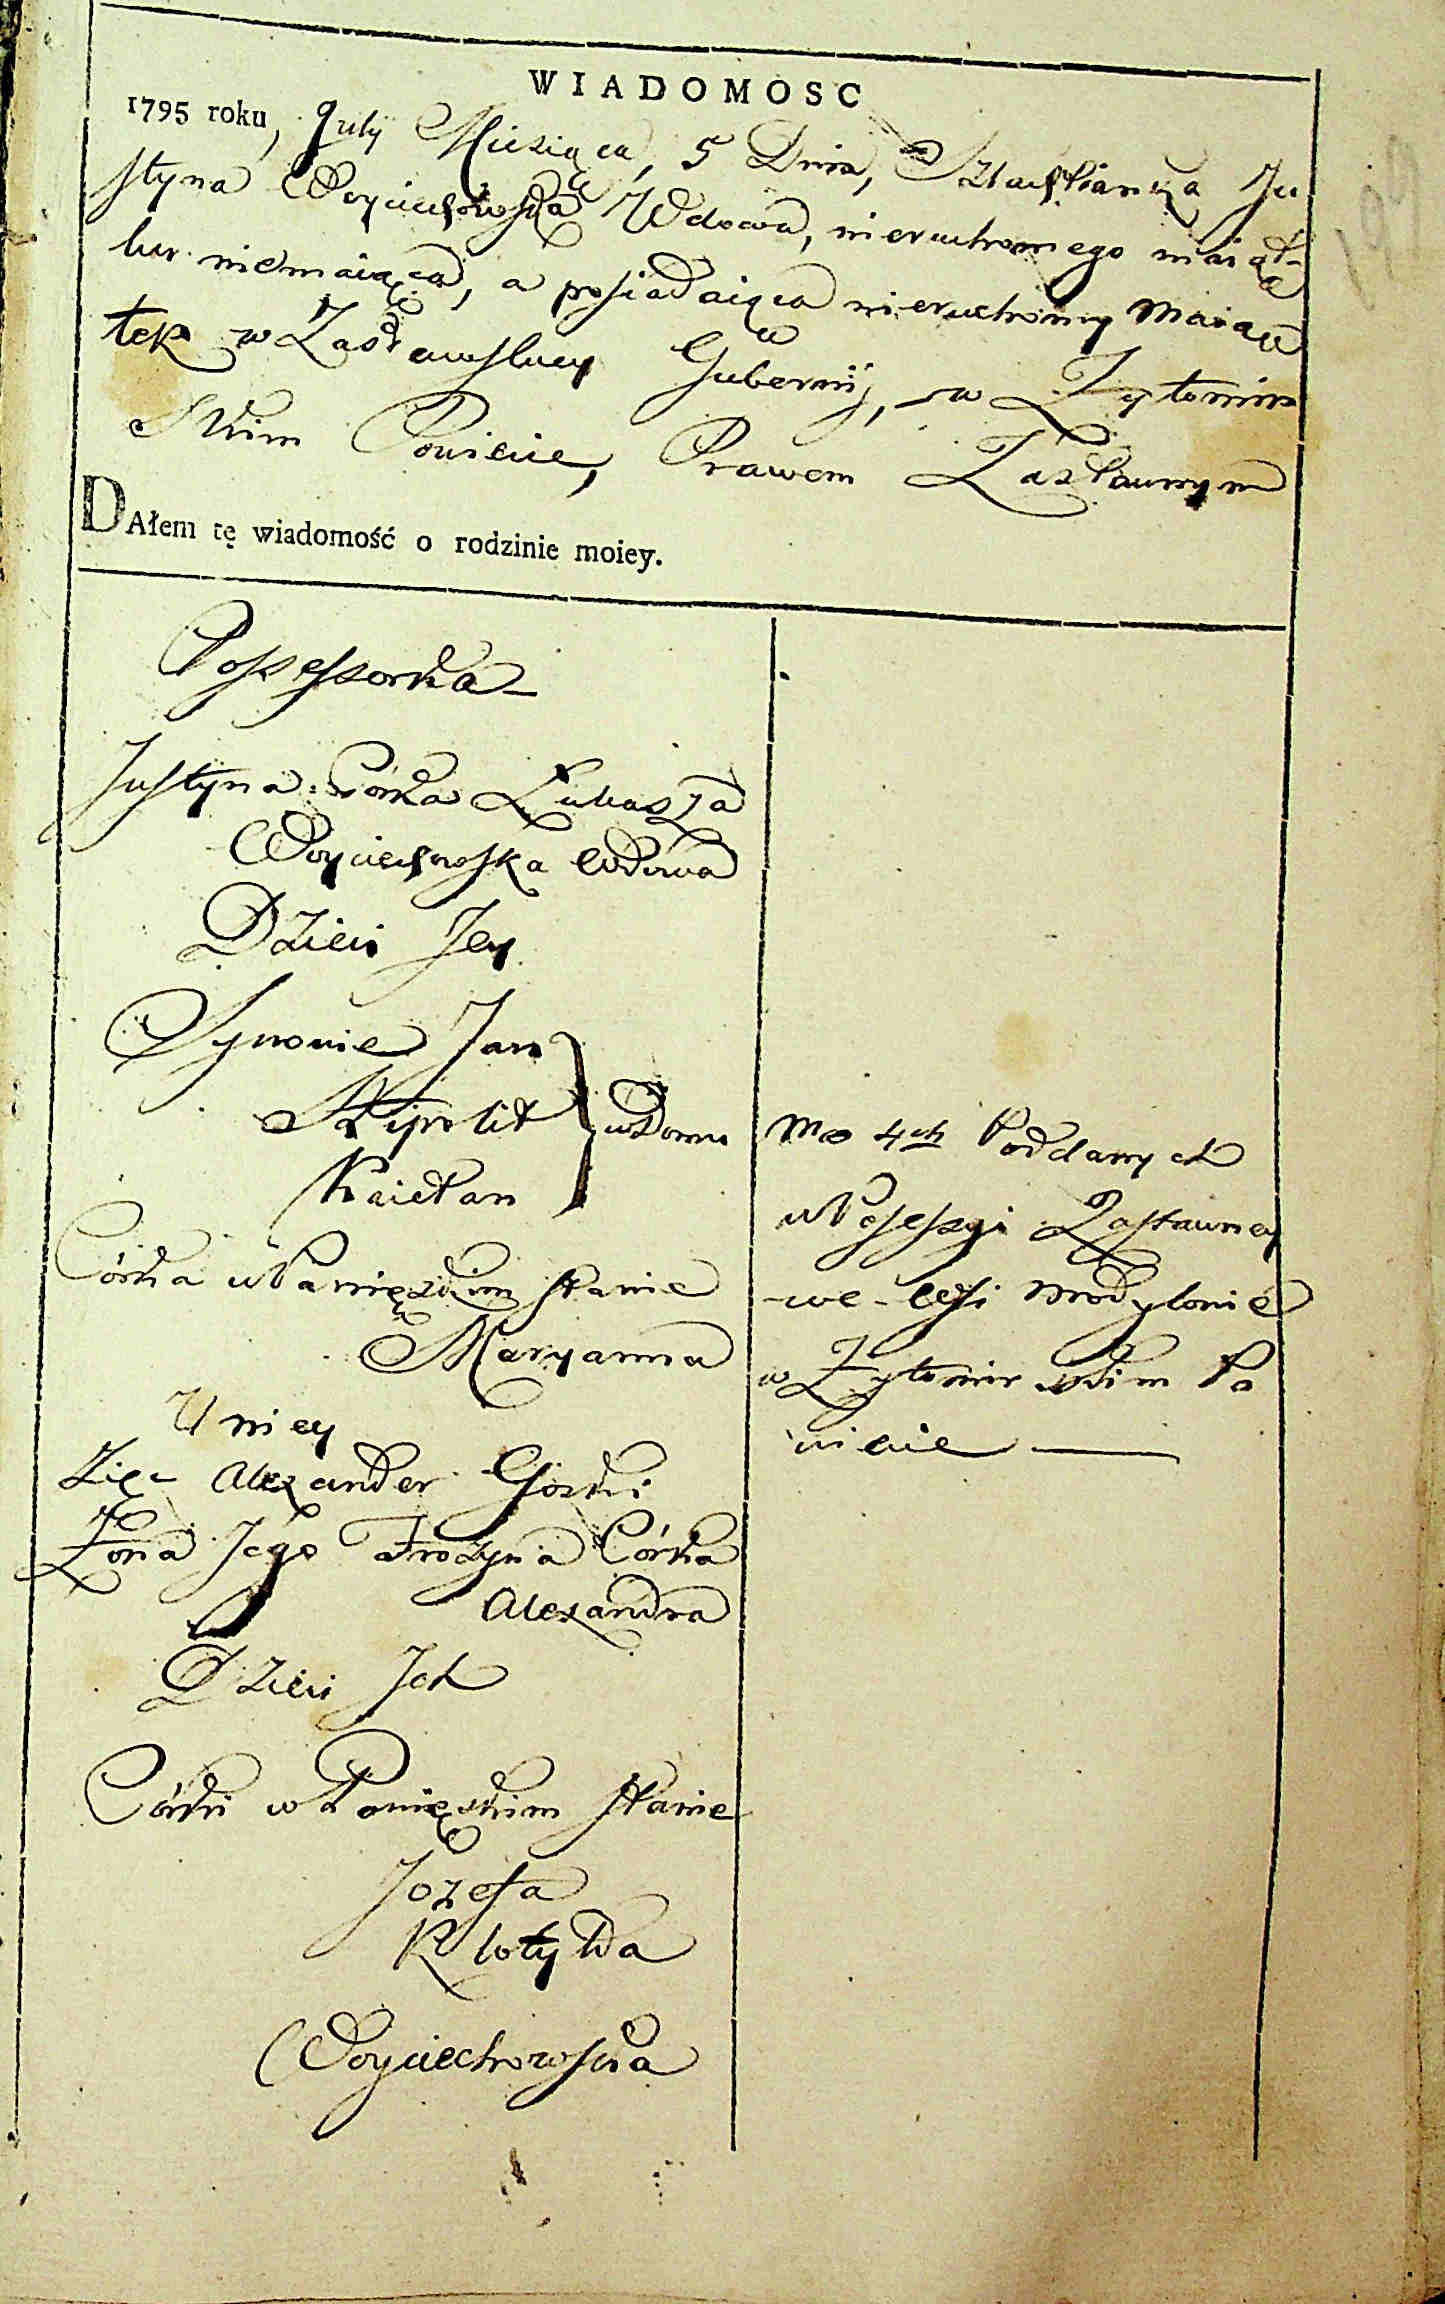 WIADOMOSC
1795 roku, July Miesiąca, 5 Dnia, Szlachcianka Ju
styna Woyciechowska Wdowa, nieruchomego maiąt-
ku niemaiąca, a posiadaiąca nieruchomy Maiąt
tek w Zasławskiey Gubernij, w Zytomir
Skim Powiecie, Prawem Zastawnym
DAłem tę wiadomość o rodzinie moiey.
Possessorka
Justyna Córka Łukasza
Woyciechowska Wdowa
Dzieci Jey
Synowie Jan
Hipolit } w Domu
Kaietan
Córka w Panięskim stanie
Maryanna
U niey
Zięć Alexander Gorski
Żona Jego Córka
Alexandra
Dzieci Ich
Córki w Panięskim stanie
Jozefa
Klotylda
Woyciechowska
Ma 4ch Poddanych
w Posessyi Zastawney
we Wsi Modylowie
w Zytomirskim Po
wiecie